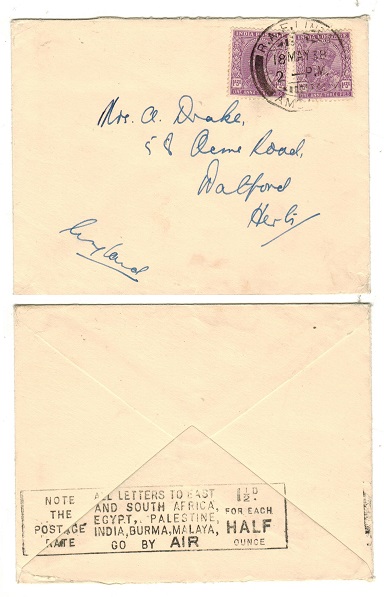 INDIA POSTAGE
INDIA POSTAGE
18 MAY 38
2 - P.M.
Mrs. A. Drake,
58 Acme Road,
Watford
Herts
England
NOTE THE POSTAGE RATE
ALL LETTERS TO EAST
AND SOUTH AFRICA,
EGYPT, PALESTINE,
INDIA, BURMA, MALAYA,
GO BY AIR
1½D
FOR EACH
HALF
OUNCE